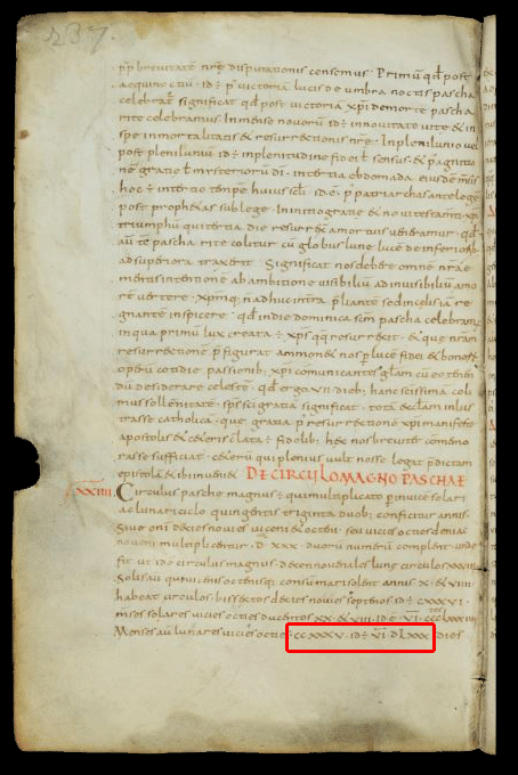 237.
p̄p̄ breuitatē nr̄ę disputationis censemus · Primū qd̄ post
aequinoctiū · id÷ p̄ victoria lucis de umbra noctis pascha
celebrat̄ significat qd̄ post victoria xp̄i de morte pascha
rite celebramus · In mense nouorū id÷ in nouitate uite & in
spe inmortalitatis & resurrectionis nr̄e · In plenilunio uel
post pleniluniū id÷ in plenitudine fidei & sensus · & p̄ agnitio
nē gratie & mysteriorū dī · in tertia ebdomada eiusdē msīs
hoc ÷ in tertio tempe huius scl̄i · id ē p̄ patriarchas ante lege
post prophetas sub lege · In initio gratie & noui testamti xp̄i
triumphū qui tertia die resurr& a mortuis ueneramur · qd̄
aū tē pascha rite colitur cū globus lune lucē de inferiorib
ad superiora traxerit · Significat nos debere omnē nr̄ae
mentis intentionē ab ambitione uisibiliū ad inuisibiliū amo
rē uertere · xp̄mq; n̄ adhuc in terra p̄liante sed in celis iā re
gnante inspicere · qd̄ in die dominica scm̄ pascha celebram
in qua primū lux creata ÷ xp̄s q; resurrexit · & que nrām
resurrectionē p̄figurat ammon& nos p̄ luce fidei & bonorū
operū cotidie passionib; xp̄i communicantes glam̄ cū eo tenen
dū desiderare celestē · qd̄ ergo VII dieb; hanc scissimā coli
mus sollēnitate · sp̄s sci gratiā significat · totā ecclam̄ inlus
trasse catholicā · que gratia p̄ resurrectionē xp̄i manifeste
apostolis & ceteris data ÷ fidelib; hec nos breuiter cōmemo
rasse sufficiat · ceterū qui plenius uult nosse legat p̄dictam
epistolā & ibi inueni& DE CIRCULO MAGNO PASCHAE
XXIIII. Circulus pasche magnus ÷ qui multiplicato p̄ inuicē solari
ac lunari ciclo quingentis triginta duob; conficitur annis ·
Siue enī decies nouies uiceni & octeni · seu uicies octies deni ac
noueni multiplicentur · D · XXX · duorū numerū complent · unde
fit ut idē circulus magnus · decennouenales lune circulos XXVIII
Solis aū qui uicenis octenisq; consūmari solent annis · X · & VIIII ·
habeat circulos · bissextos decies nouies septenos id÷ CXXXIII ·
mēses solares uicies octies ducentos XX · & VIII · id ē · V̄Ī · CCCLXXXIIII
Menses aū lunares uicies octies CCXXXV · id÷ V̄Ī · DLXXX · dies